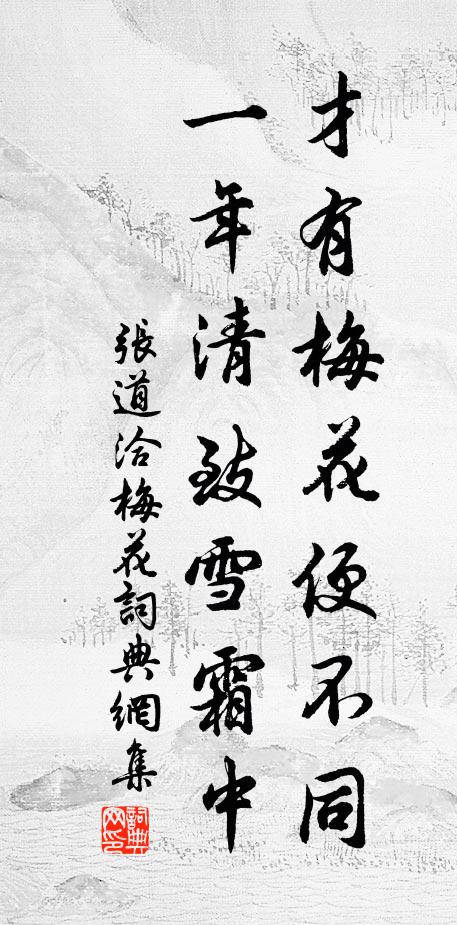 才有梅花便不同
一年清致雪霜中
張道洽梅花詞典網集
詞典網印